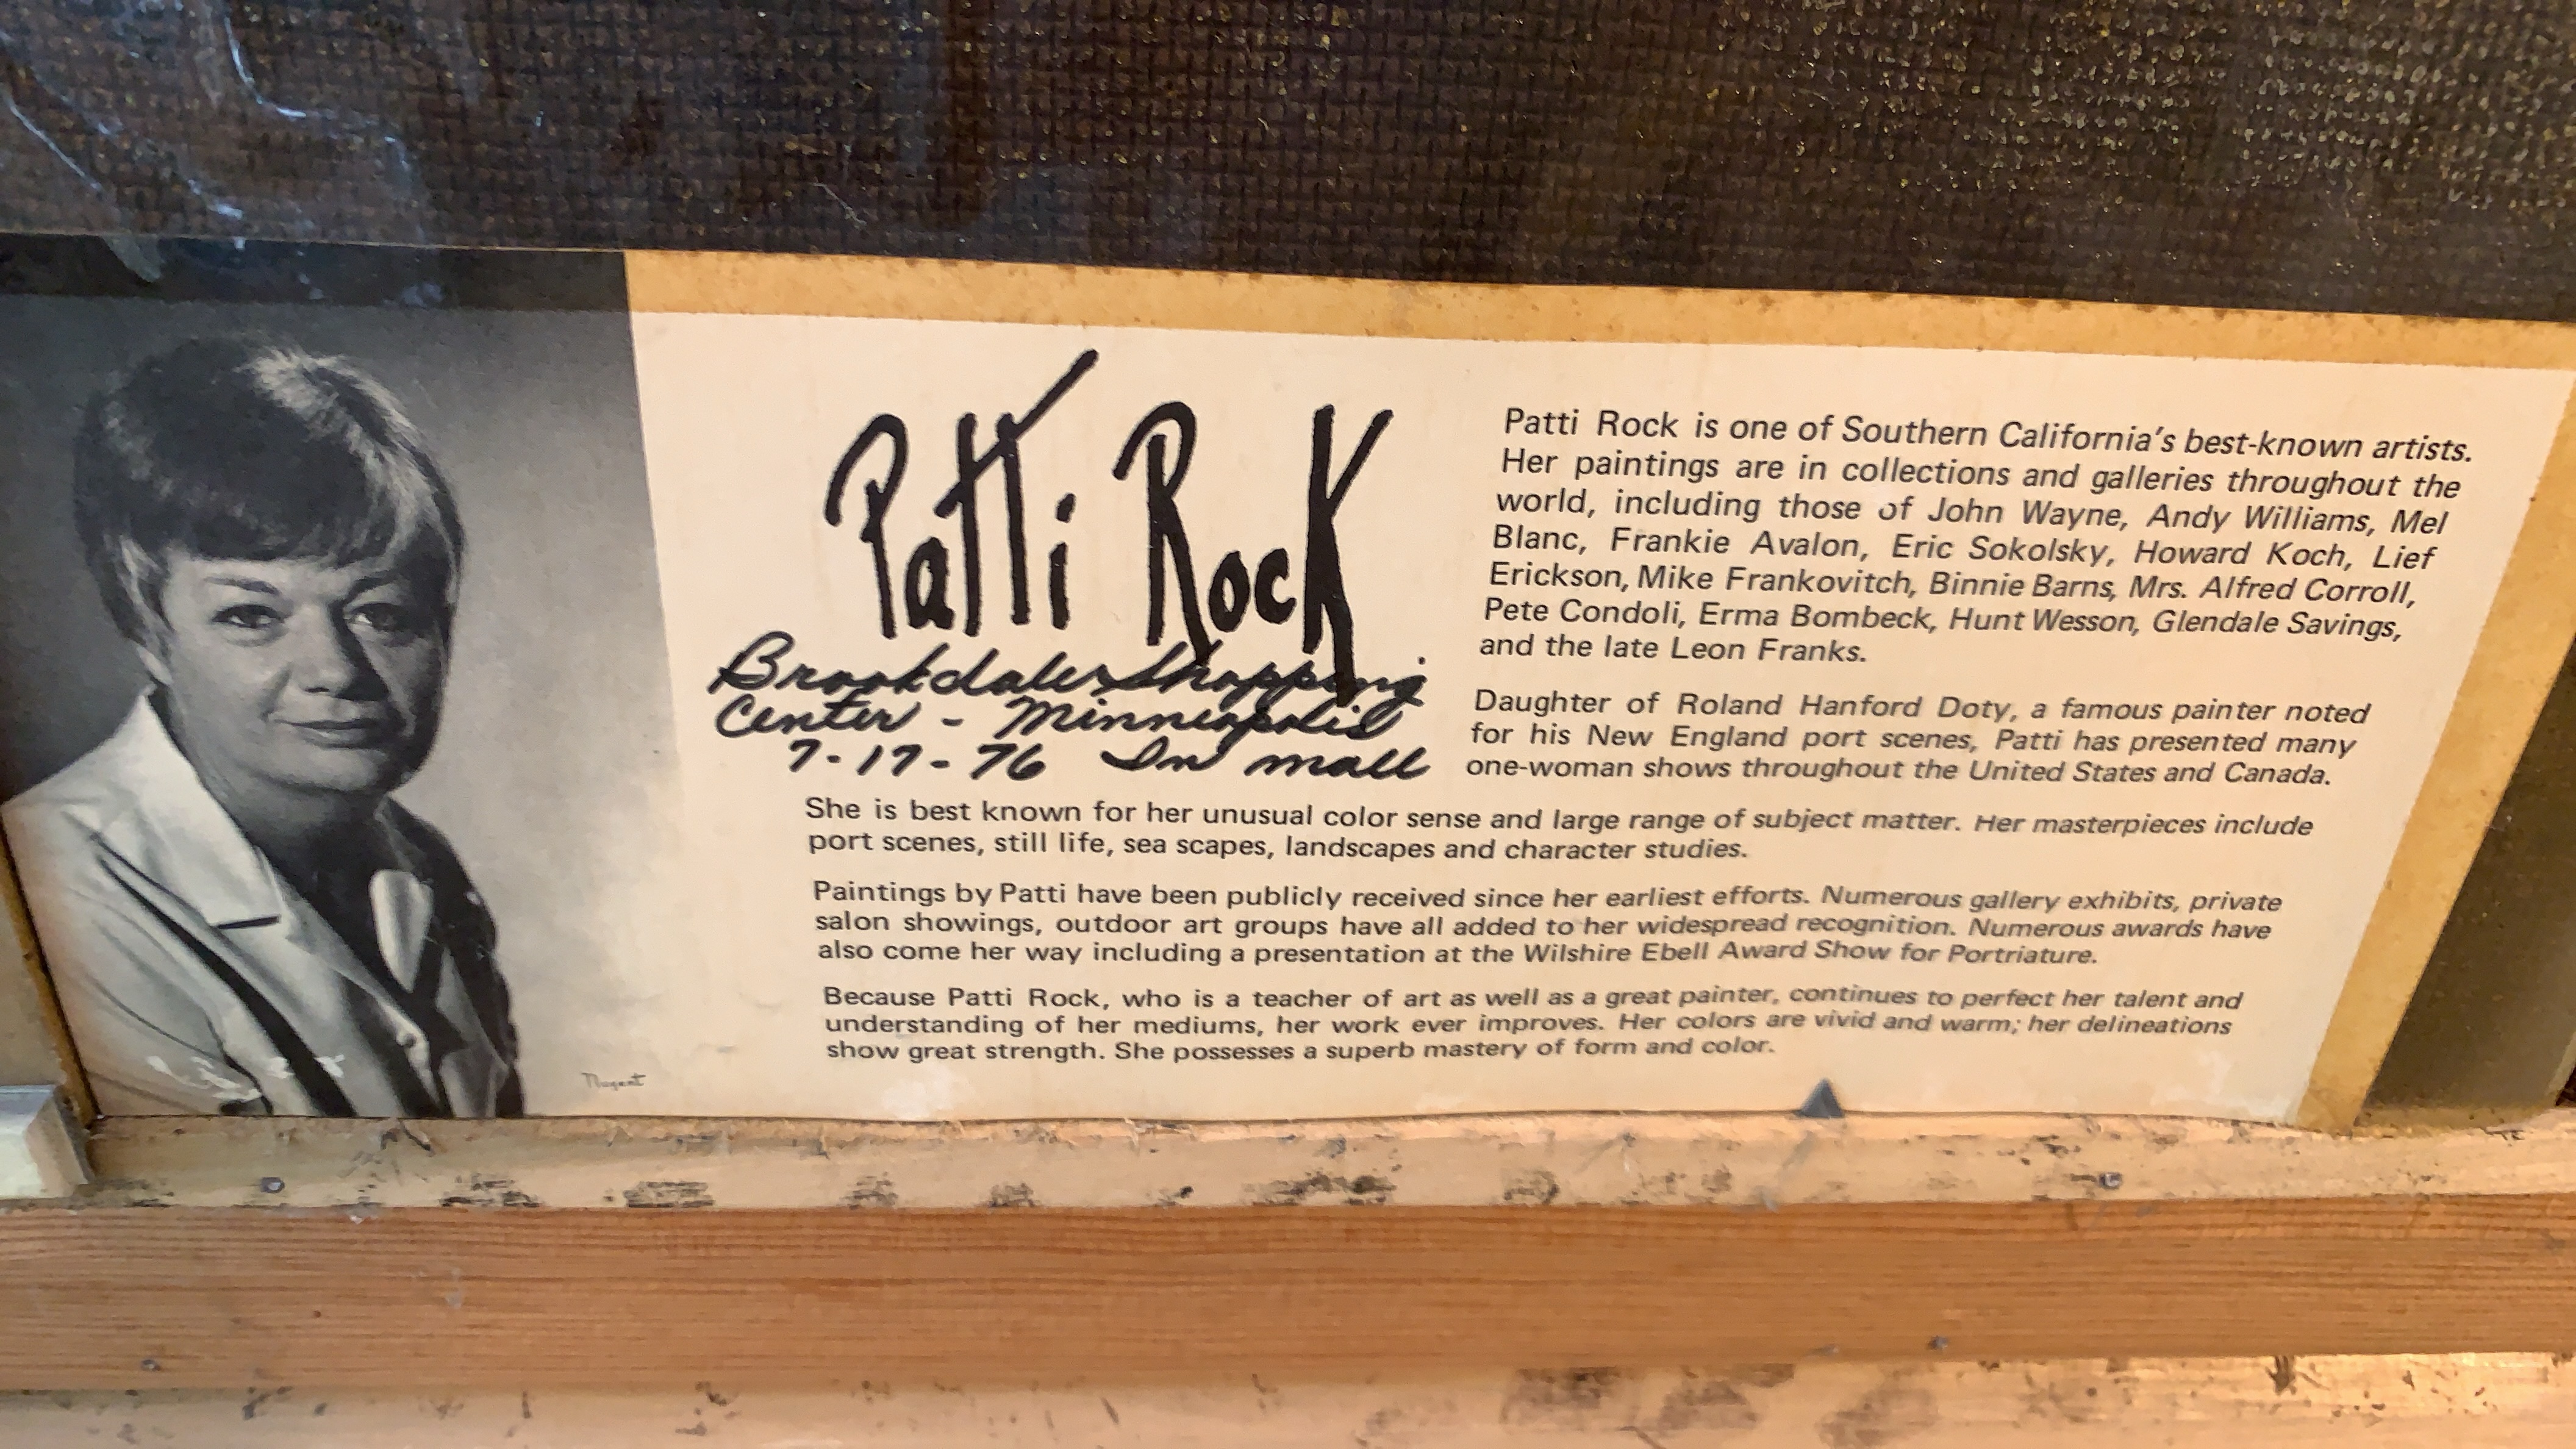 Patti Rock
Brookdale Shopping
Center - Minneapolis
7-17-76 In mall
Patti Rock is one of Southern California's best-known artists.
Her paintings are in collections and galleries throughout the
world, including those of John Wayne, Andy Williams, Mel
Blanc, Frankie Avalon, Eric Sokolsky, Howard Koch, Lief
Erickson, Mike Frankovitch, Binnie Barns, Mrs. Alfred Corroll,
Pete Condoli, Erma Bombeck, Hunt Wesson, Glendale Savings,
and the late Leon Franks.
Daughter of Roland Hanford Doty, a famous painter noted
for his New England port scenes, Patti has presented many
one-woman shows throughout the United States and Canada.
She is best known for her unusual color sense and large range of subject matter. Her masterpieces include
port scenes, still life, sea scapes, landscapes and character studies.
Paintings by Patti have been publicly received since her earliest efforts. Numerous gallery exhibits, private
salon showings, outdoor art groups have all added to her widespread recognition. Numerous awards have
also come her way including a presentation at the Wilshire Ebell Award Show for Portriature.
Because Patti Rock, who is a teacher of art as well as a great painter, continues to perfect her talent and
understanding of her mediums, her work ever improves. Her colors are vivid and warm; her delineations
show great strength. She possesses a superb mastery of form and color.
Nugent